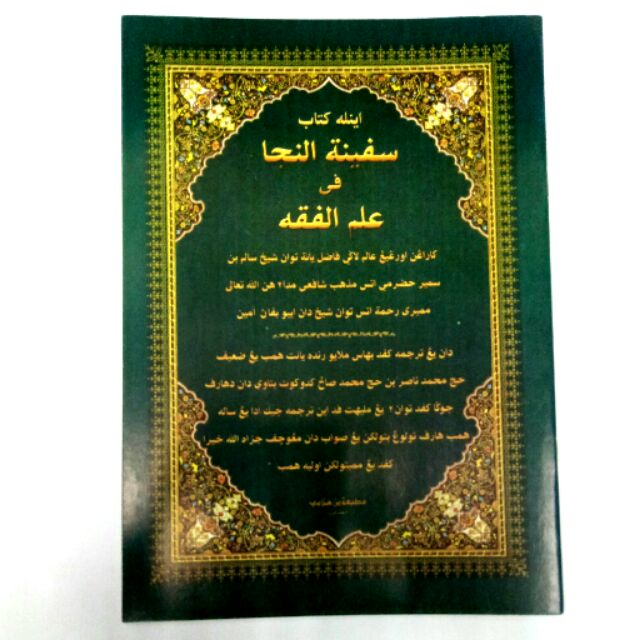 اينله كتاب
سفينة النجا
فى
علم الفقه
كاراغن اورغيغ عالم لاݢي فاضل يائة توان شيخ سالم بن
سمير حضرمي اتس مذهب شافعي مدا٢ هن الله تعالى
ممبري رحمة اتس توان شيخ دان ايبو بفان امين
دان يغ ترجمه كفد بهاس ملايو رنده يائت همب يغ ضعيف
حج محمد ناصر بن حج محمد صالح كدوكوت بتاوي دان دهارف
جوݢا كفد توان٢ يغ مليهت فد اين ترجمه جيك ادا يغ ساله
همب هارف تولوغ بتولكن يغ صواب دان مغوچف جزاه الله خيرا
كفد يغ ممبتولكن اوليه همب